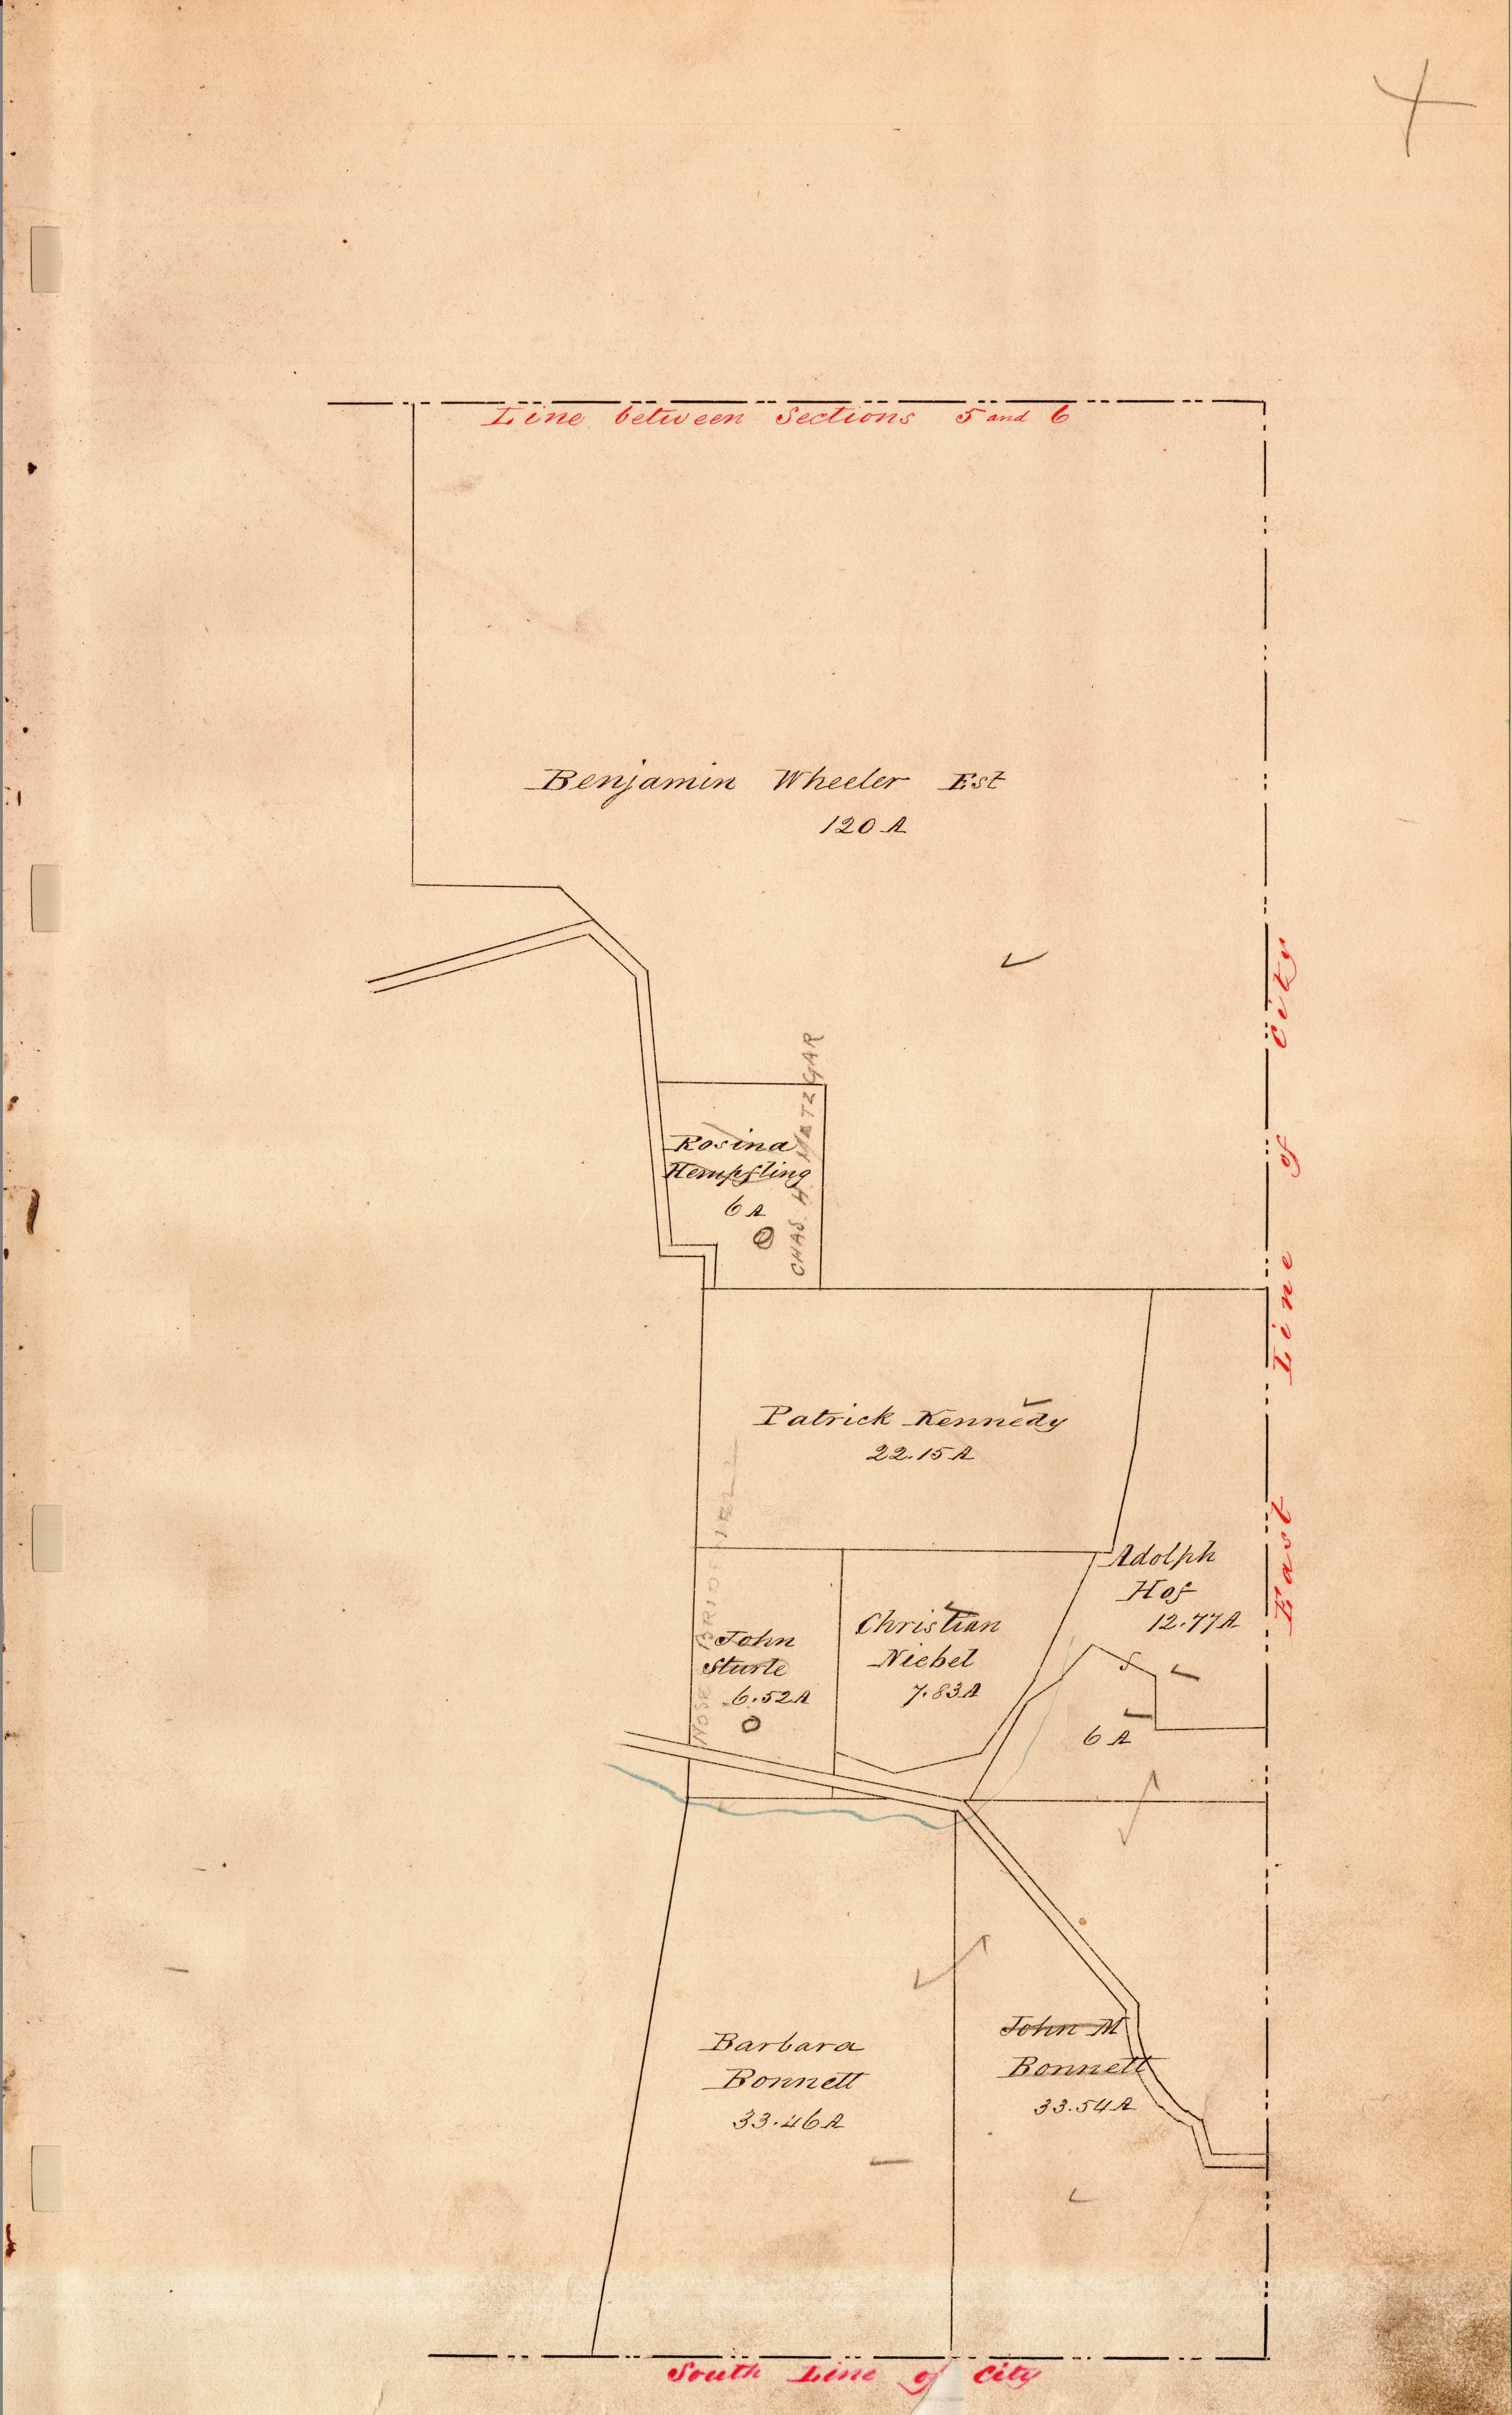 Line between Sections 5 and 6
Benjamin Wheeler Est
120 A
East Line of City
CHAS. H. METZGAR
Rosina
Hempfling
6 A
Patrick Kennedy
22.15 A
Adolph
Hof
12.77 A
John
Sturle
6.52 A
Christian
Niebel
7.83 A
6 A
Barbara
Bonnett
33.46 A
John M
Bonnett
33.54 A
South Line of City